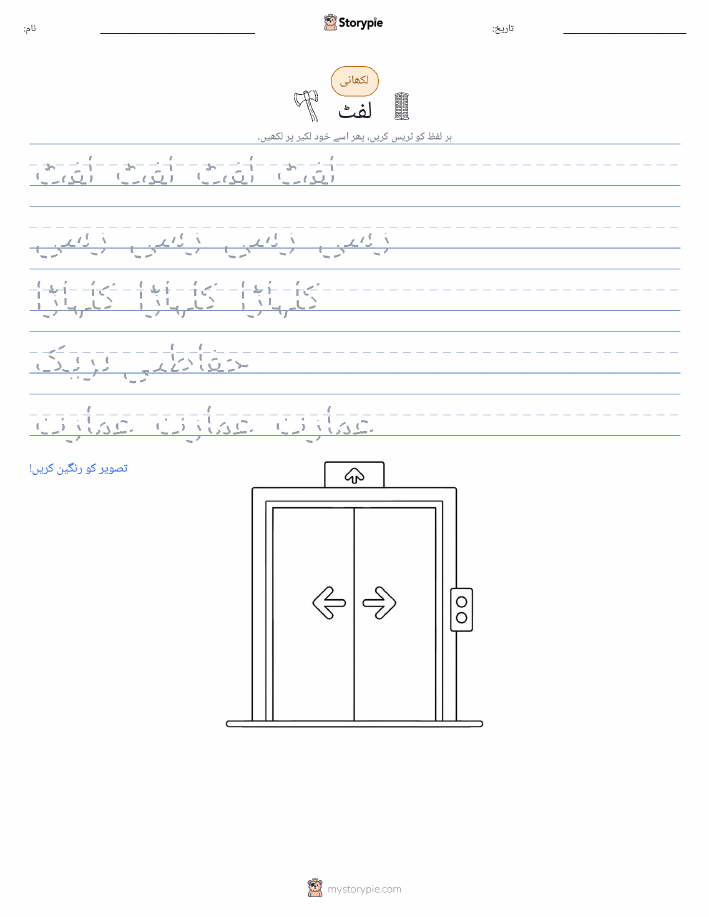 نام:
Storypie
تاریخ:
لکھائی
لفٹ
ہر لفظ کو ٹریس کریں، پھر اسے خود لکیر پر لکھیں۔
لفٹ لفٹ لفٹ لفٹ
رسی رسی رسی رسی
کلہاڑا کلہاڑا کلہاڑا
حفاظتی بریک
عمارت عمارت عمارت
تصویر کو رنگین کریں!
mystorypie.com